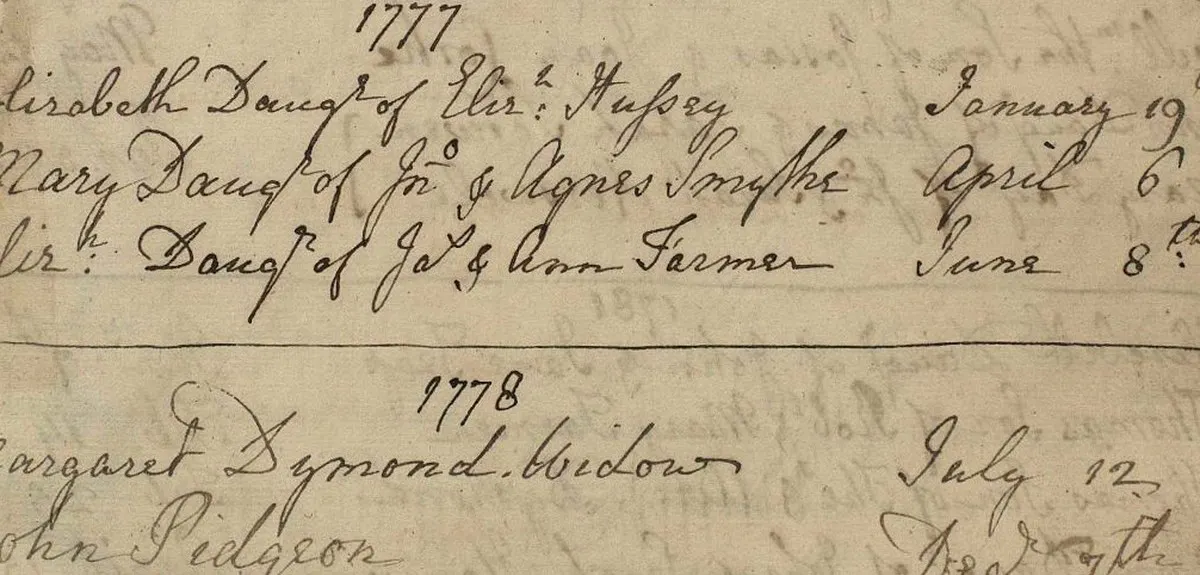 1777
lizabeth Daugr of Elizh: Hussey January 19
Mary Daugr of Jno & Agnes Smythe April 6
lizh: Daugr of Jas & Ann Farmer June 8th:
1778
argaret Dymond. Widow July 12
ohn Pidgeon